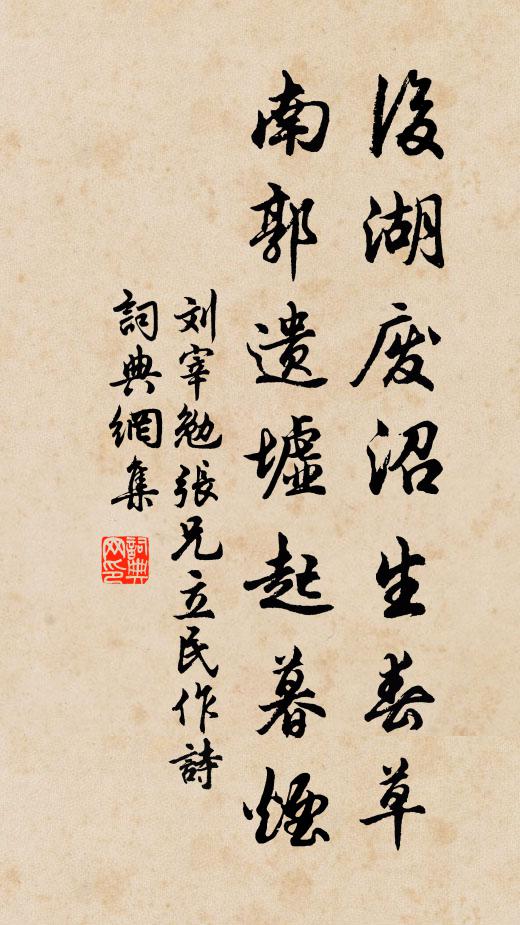 後湖废沼生春草
南郭遗墟起暮煙
刘宰勉張兄立民作詩
詞典網集
詞典網印